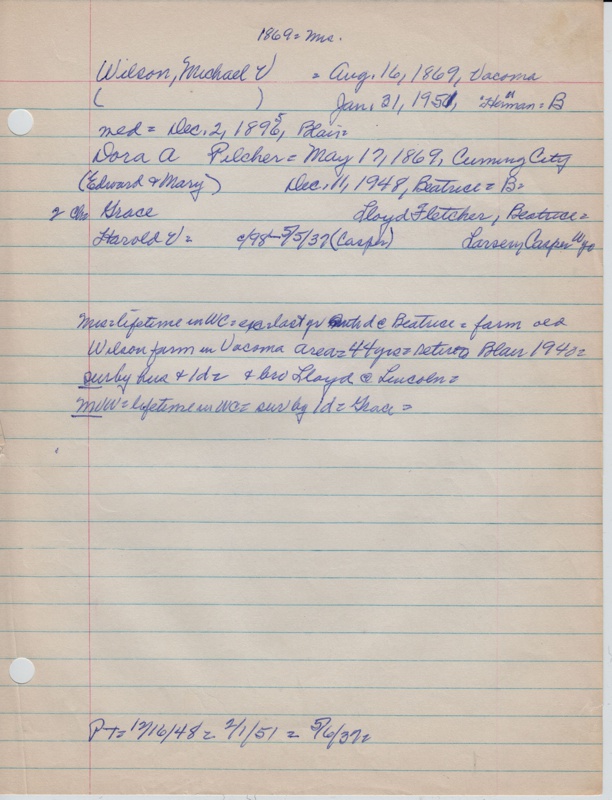 1869 = Mrs.
Wilson, Michael V = Aug. 16, 1869, Vacoma
( ) Jan. 31, 1951, "Herman" = B
med = Dec. 2, 1896, 5 Blair =
Dora A Pilcher = May 17, 1869, Cuming City
(Edward & Mary) Dec. 11, 1948, Beatrice = B =
2 Chs Grace Lloyd Fletcher, Beatrice =
Harold V = c/98 - 5/5/37 (Casper) Larsen, Casper Wyo
Mrs = lifetime in WC = exc last yr @ Beatrice = farm old
Wilson farm in Vacoma area = 44 yrs = retire Blair 1940 =
sur by hus & 1d = & bro Lloyd @ Lincoln =
MVW = lifetime in WC = sur by 1d = Grace =
PT = 12/16/48 = 2/1/51 = 5/6/37 =